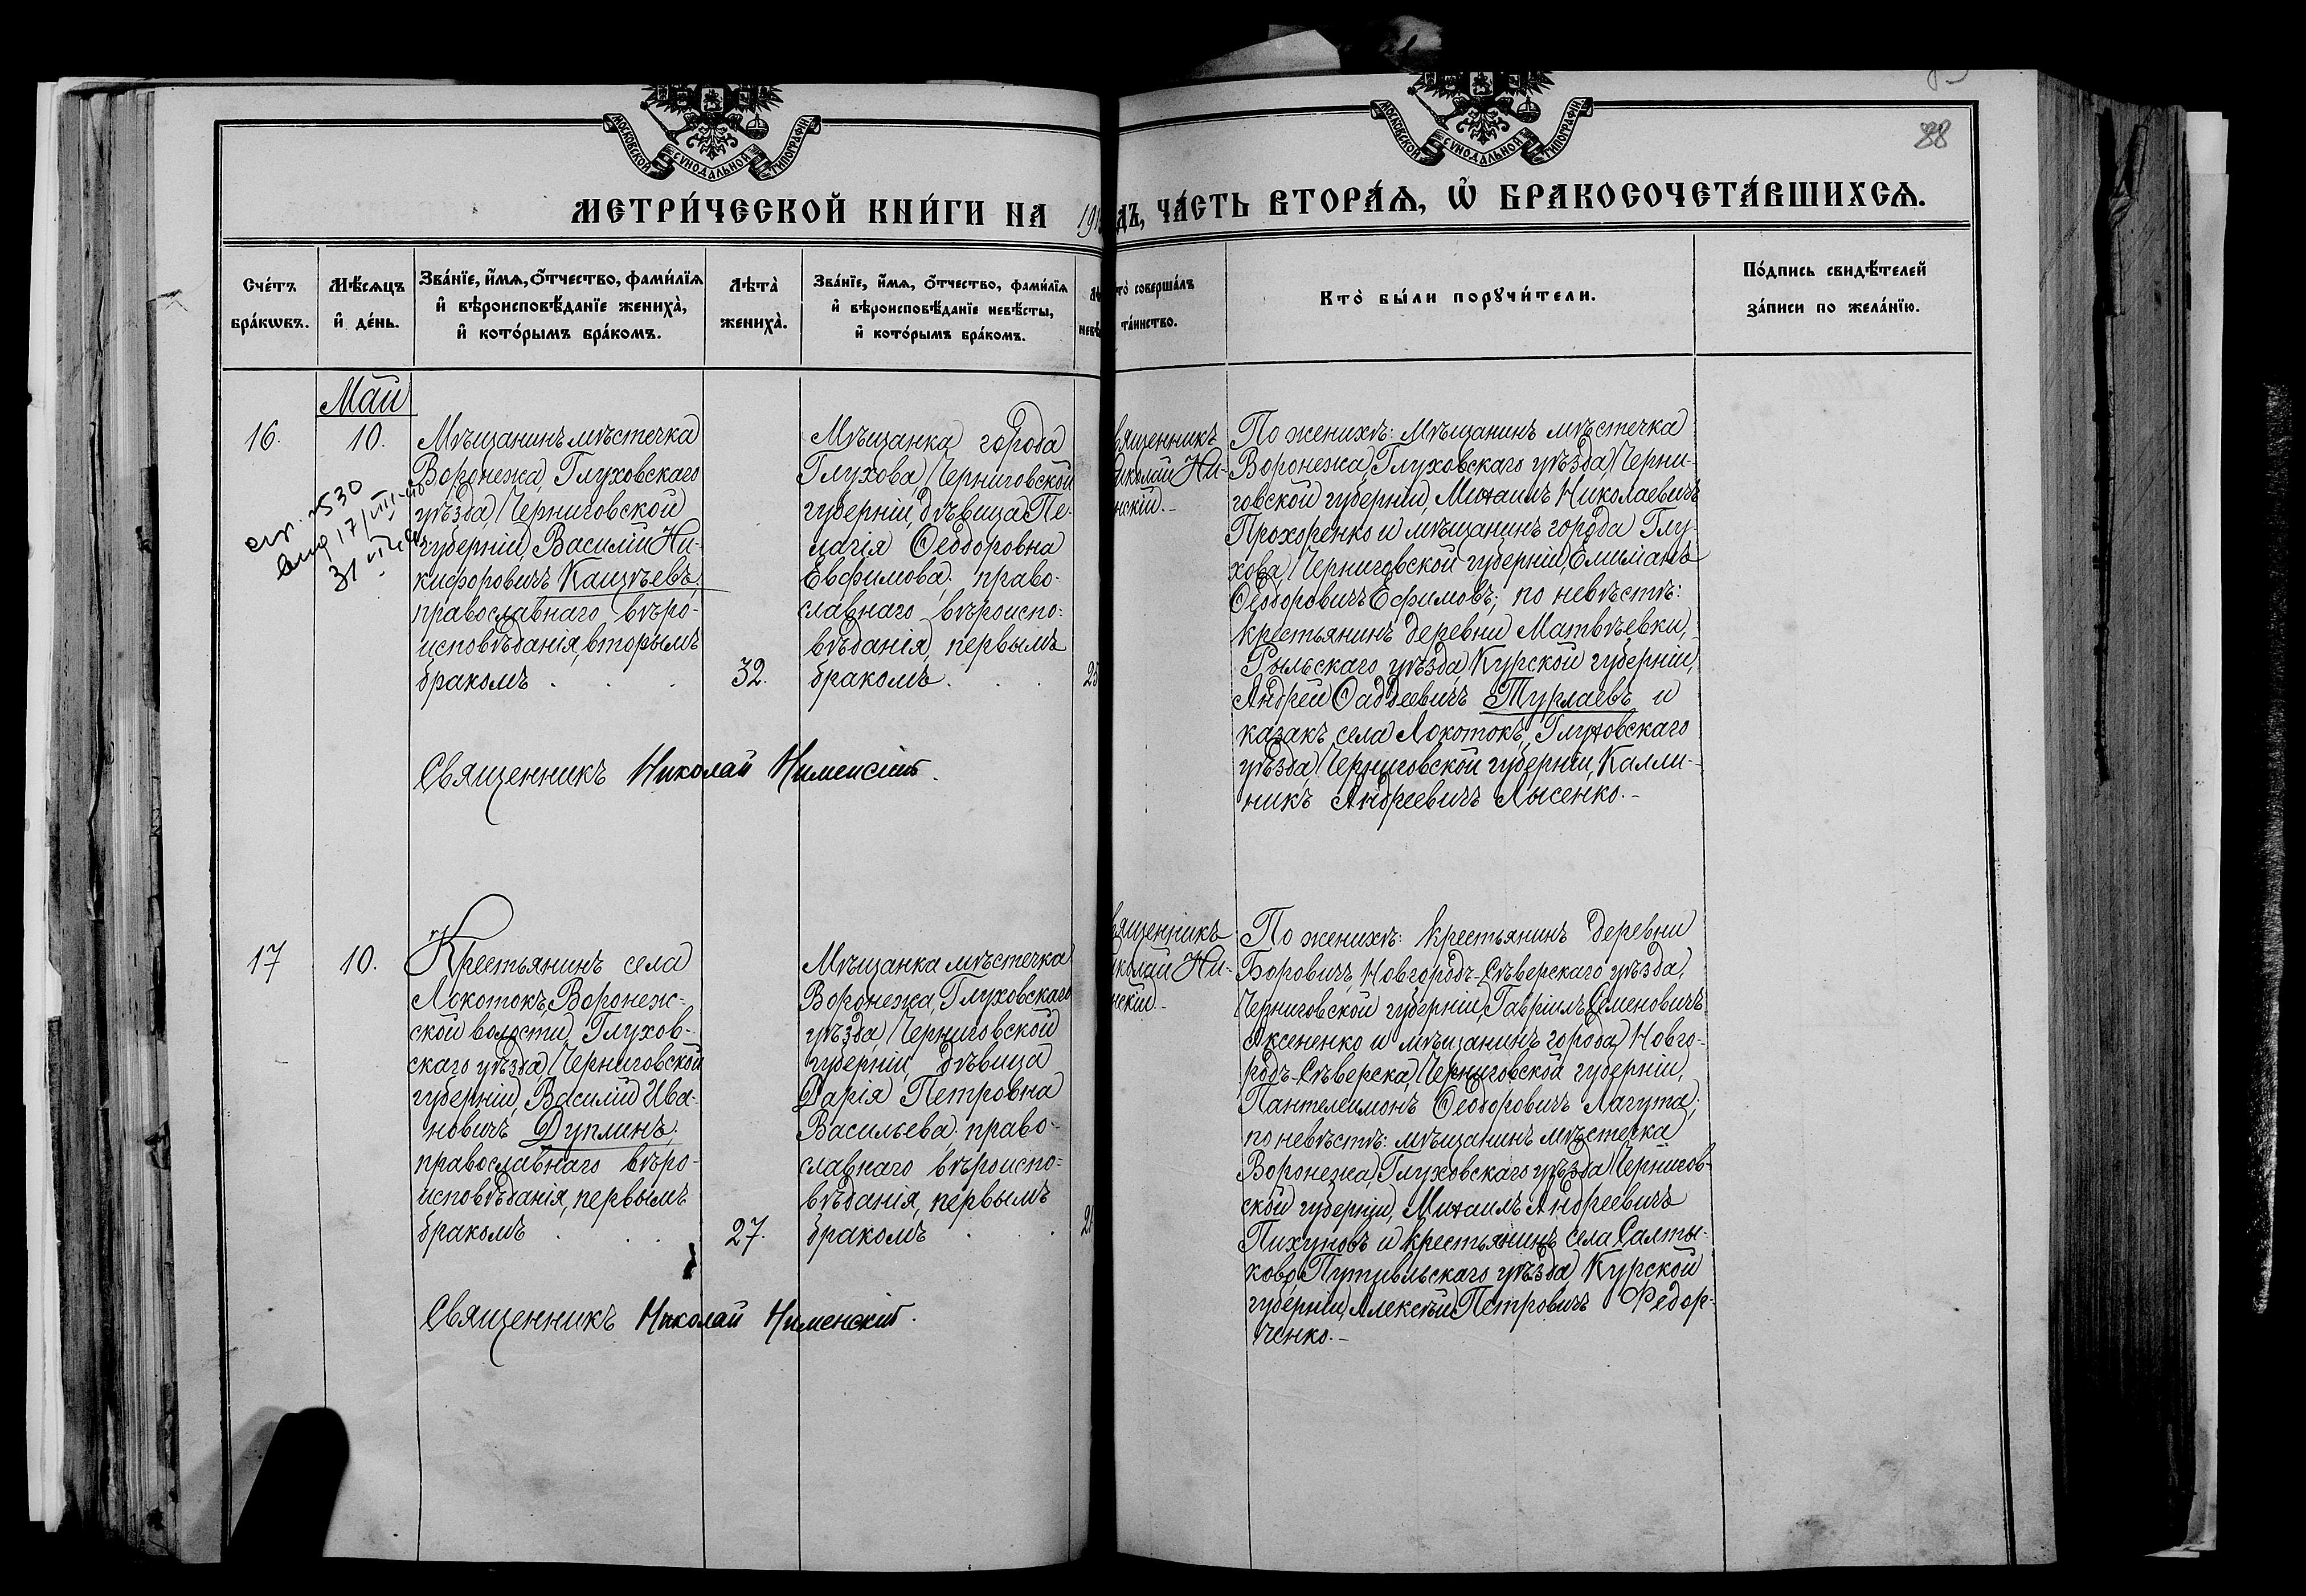 88
МОСКОВСКОЙ СУНОДАЛЬНОЙ ТИПОГРАФІИ
МОСКОВСКОЙ СУНОДАЛЬНОЙ ТИПОГРАФІИ
МЕТРИ́ЧЕСКОЙ КНИ́ГИ НА 191 ДЪ, ЧА́СТЬ ВТОРА́Ѧ, Ѽ БРАКОСОЧЕТА́ВШИХСѦ.
Сче́тъ
бра́кѡвъ.
Мѣ́сѧцъ
и҆ де́нь.
Зва́нїе, и҆́мѧ, ѻ҆́тчество, фами́лїѧ
и҆ вѣроисповѣ́данїе жениха̀,
и҆ кото́рымъ бра́комъ.
Лѣта̀
жениха̀.
Зва́нїе, и҆́мѧ, ѻ҆́тчество, фами́лїѧ
и҆ вѣроисповѣ́данїе невѣ́сты,
и҆ кото́рымъ бра́комъ.
Лѣ
невѣ
то̀ соверша́лъ
та́инство.
Кто̀ бы́ли порꙋчи́тели.
По́дпись свидѣ́телей
за́писи по жела́нїю.
Май
16.
10.
530
Мѣщанинъ мѣстечка
Воронежа, Глуховскаго
уѣзда, Черниговской
губерніи, Василій Ни-
кифоровичъ Кащѣевъ,
православнаго вѣро-
исповѣданія, вторымъ
бракомъ . . .
32.
Мѣщанка города
Глухова, Черниговской
губерніи, дѣвица Пе-
лагія Ѳеодоровна
Евфимова, право-
славнаго вѣроиспо-
вѣданія, первымъ
бракомъ . . .
25
вященникъ
иколай Ни-
нскій.-
По женихѣ: мѣщанинъ мѣстечка
Воронежа, Глуховскаго уѣзда, Черни-
говской губерніи, Михаилъ Николаевичъ
Прохоренко и мѣщанинъ города Глу-
хова, Черниговской губерніи, Емиліанъ
Ѳеодоровичъ Ефимовъ; по невѣстѣ:
крестьянинъ деревни Матвѣевки,
Рыльскаго уѣзда, Курской губерніи,
Андрей Ѳаддеевичъ Турлаевъ и
казакъ села Локотокъ, Глуховскаго
уѣзда, Черниговской губерніи, Калли-
никъ Андреевичъ Лысенко.-
Священникъ Николай Нименскій.
17
10.
Крестьянинъ села
Локотокъ, Воронеж-
ской волости, Глухов-
скаго уѣзда, Черниговской
губерніи, Василій Ива-
новичъ Дуплинъ,
православнаго вѣро-
исповѣданія, первымъ
бракомъ . . .
27.
Мѣщанка мѣстечка
Воронежа, Глуховскаго
уѣзда, Черниговской
губерніи, дѣвица
Дарія Петровна
Васильева, право-
славнаго вѣроиспо-
вѣданія, первымъ
бракомъ . . .
вященникъ
иколай Ни-
нскій.-
По женихѣ: крестьянинъ деревни
Боровичъ, Новгородъ-Сѣверскаго уѣзда,
Черниговской губерніи, Гавріилъ Семеновичъ
Аксененко и мѣщанинъ города Новго-
родъ-Сѣверска, Черниговской губерніи,
Пантелеимонъ Ѳеодоровичъ Лагута;
по невѣстѣ: мѣщанинъ мѣстечка
Воронежа, Глуховскаго уѣзда, Чернигов-
ской губерніи, Михаилъ Андреевичъ
Пихуновъ и крестьянинъ села Салты-
ково, Путивльскаго уѣзда, Курской
губерніи, Алексѣй Петровичъ Федор-
ченко.-
Священникъ Николай Нименскій.